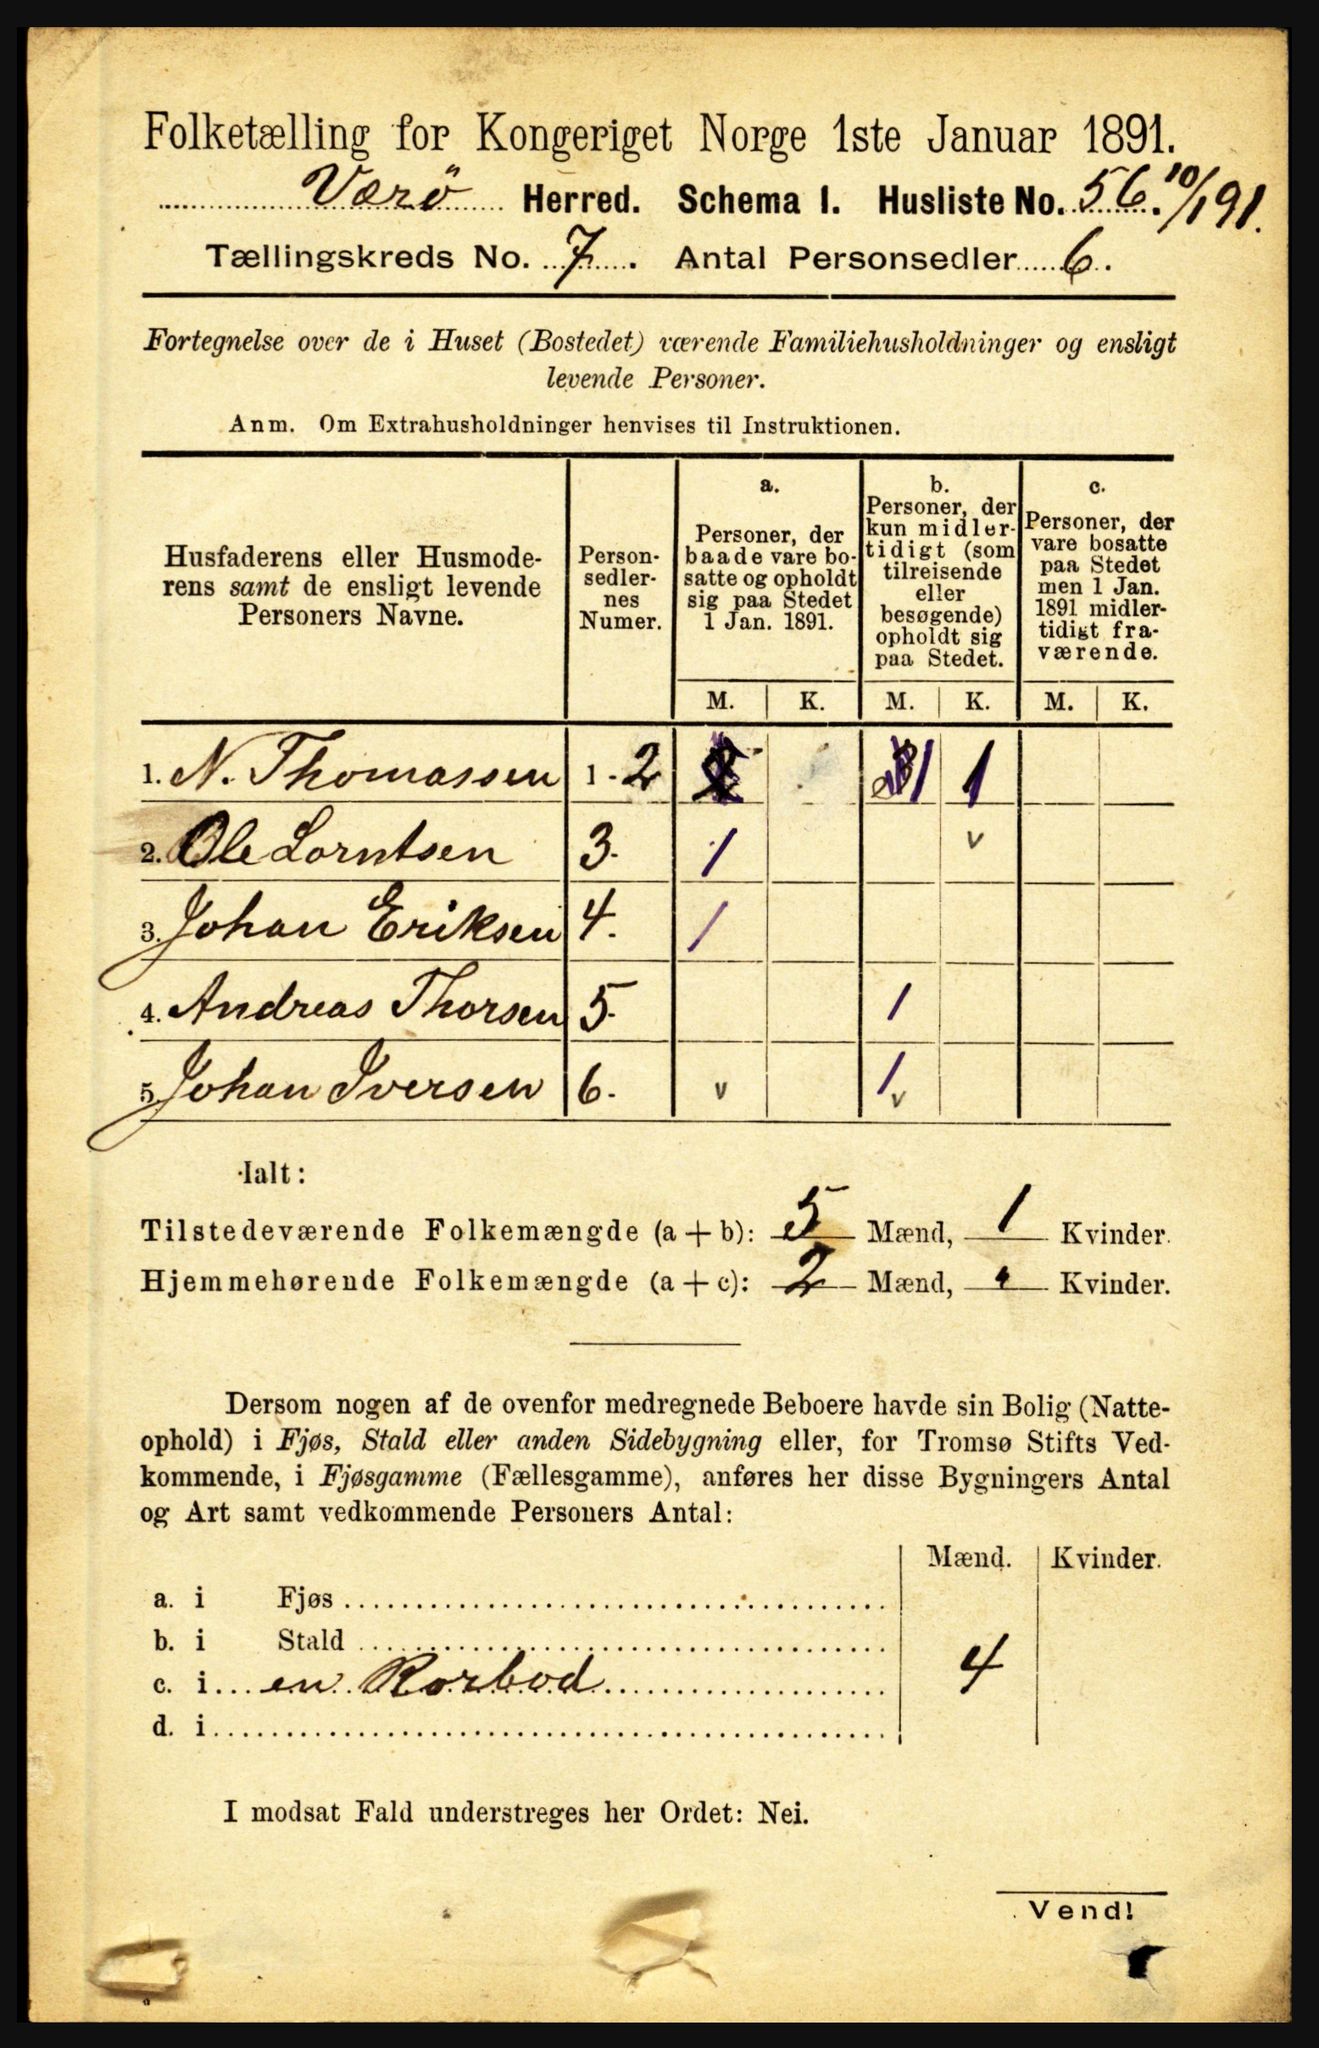 Folketælling for Kongeriget Norge 1ste Januar 1891.
Værö Herred. Schema I. Husliste No. 56. 10/1 91.
Tællingskreds No. 7. Antal Personsedler 6.
Fortegnelse over de i Huset (Bostedet) værende Familiehusholdninger og ensligt
levende Personer.
Anm. Om Extrahusholdninger henvises til Instruktionen.
Husfaderens eller Husmode-
rens samt de ensligt levende
Personers Navne.
Person-
sedler-
nes
Numer.
a.
Personer, der
baade vare bo-
satte og opholdt
sig paa Stedet
1 Jan. 1891.
b.
Personer, der
kun midler-
tidigt (som
tilreisende
eller
besøgende)
opholdt sig
paa Stedet.
c.
Personer, der
vare bosatte
paa Stedet
men 1 Jan.
1891 midler-
tidigt fra-
værende.
M. K. M. K. M. K.
1. N. Thomassen 1 - 2 1 1
2. Ole Lorntsen 3. 1 v
3. Johan Eriksen 4. 1
4. Andreas Thorsen 5. 1
5. Johan Iversen 6. v 1 v
Ialt:
Tilstedeværende Folkemængde (a + b): 5 Mænd, 1 Kvinder.
Hjemmehørende Folkemængde (a + c): 2 Mænd, Kvinder.
Dersom nogen af de ovenfor medregnede Beboere havde sin Bolig (Natte-
ophold) i Fjøs, Stald eller anden Sidebygning eller, for Tromsø Stifts Ved-
kommende, i Fjøsgamme (Fællesgamme), anføres her disse Bygningers Antal
og Art samt vedkommende Personers Antal:
Mænd. Kvinder.
a. i Fjøs
b. i Stald
c. i en Rorbod 4
d. i
I modsat Fald understreges her Ordet: Nei.
Vend!